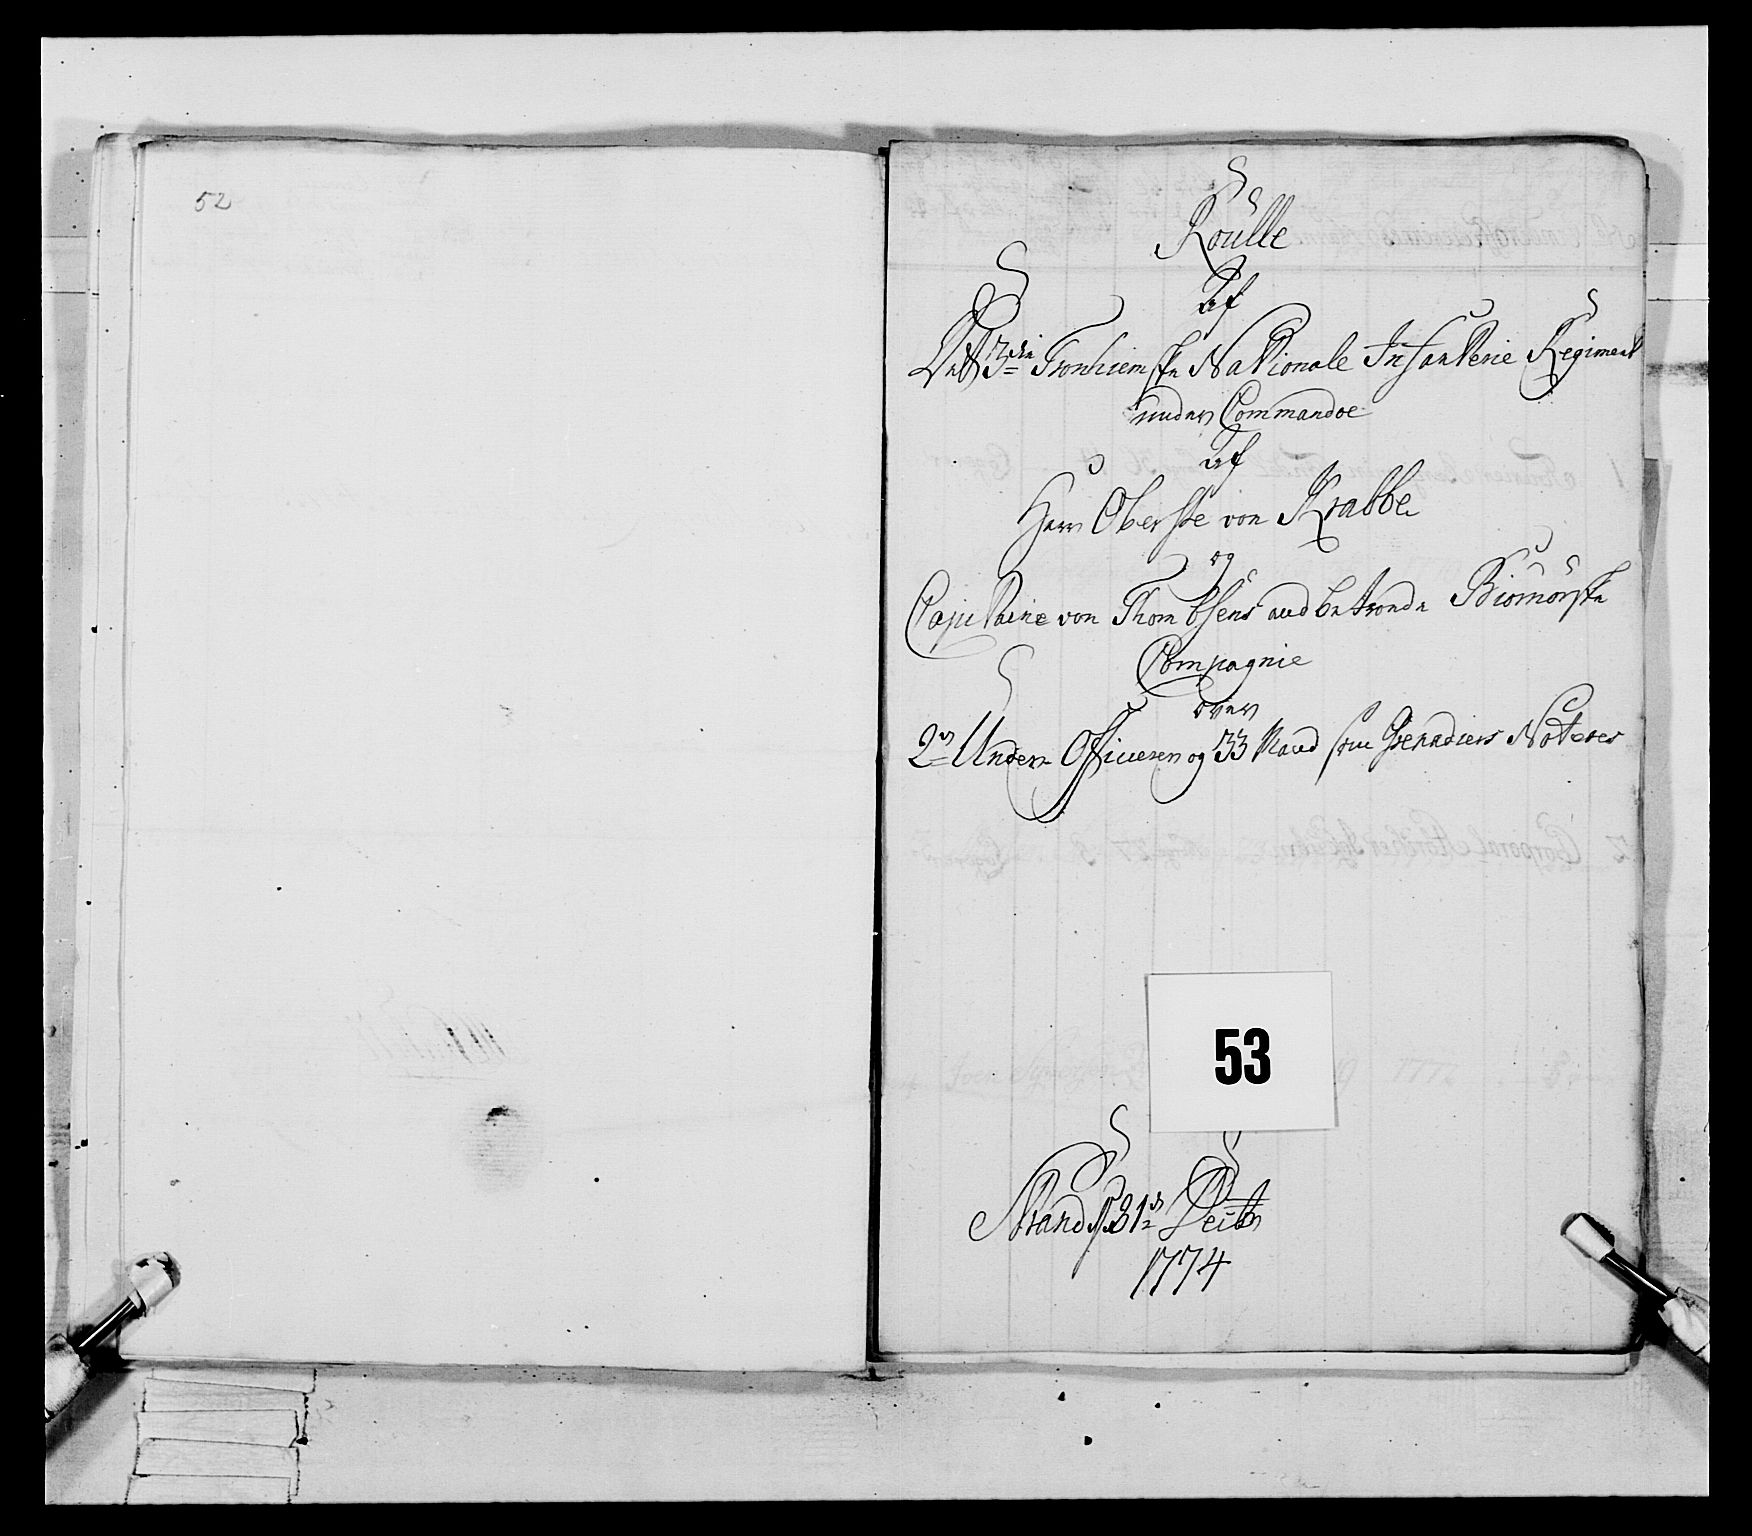 52
Roulle
Af
Det 3die Tronhiemske Nationale Infanterie Regiment
under Commandoe
Af
Herr Oberste von Krabbe
og
Capitaine von Thombsens anbetroede Biornörske
Compagnie
over
2de Under Officerer og 33 Mand som Grenadiers Noteres
53
Strand d 31te Decbr
1774